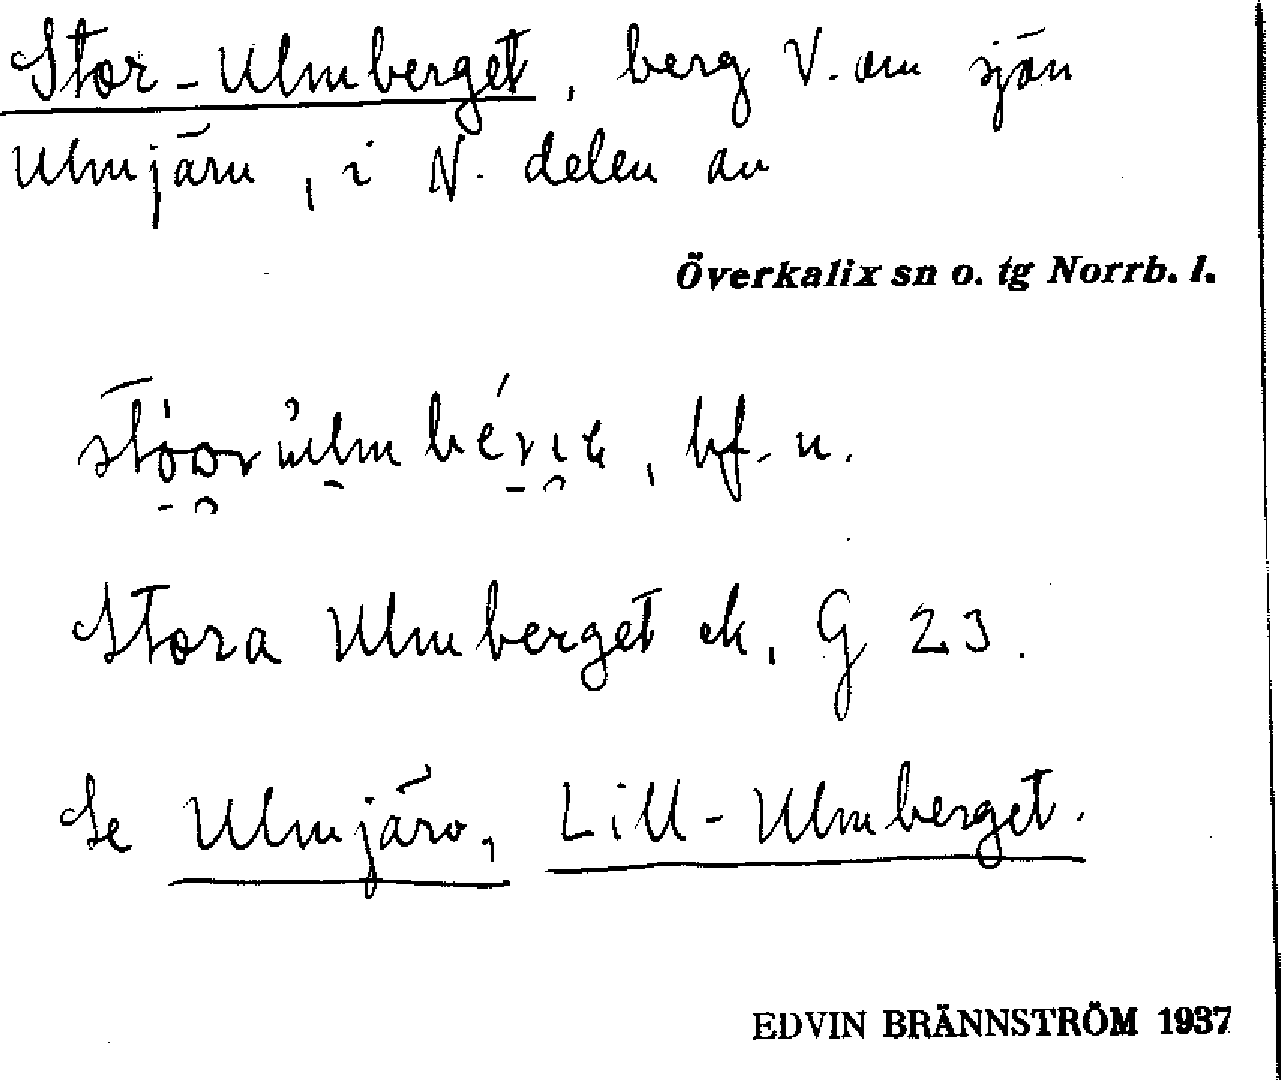 Stor-Ulmberget, berg V. om sjön
Ulmjärv, i N. delen av
Överkalix sn o. tg Norrb. l.
bf. n.
Stora Ulmberget ek. G 23.
Se Ulmjärv, Lill-Ulmberget.
EDVIN BRÄNNSTRÖM 1937